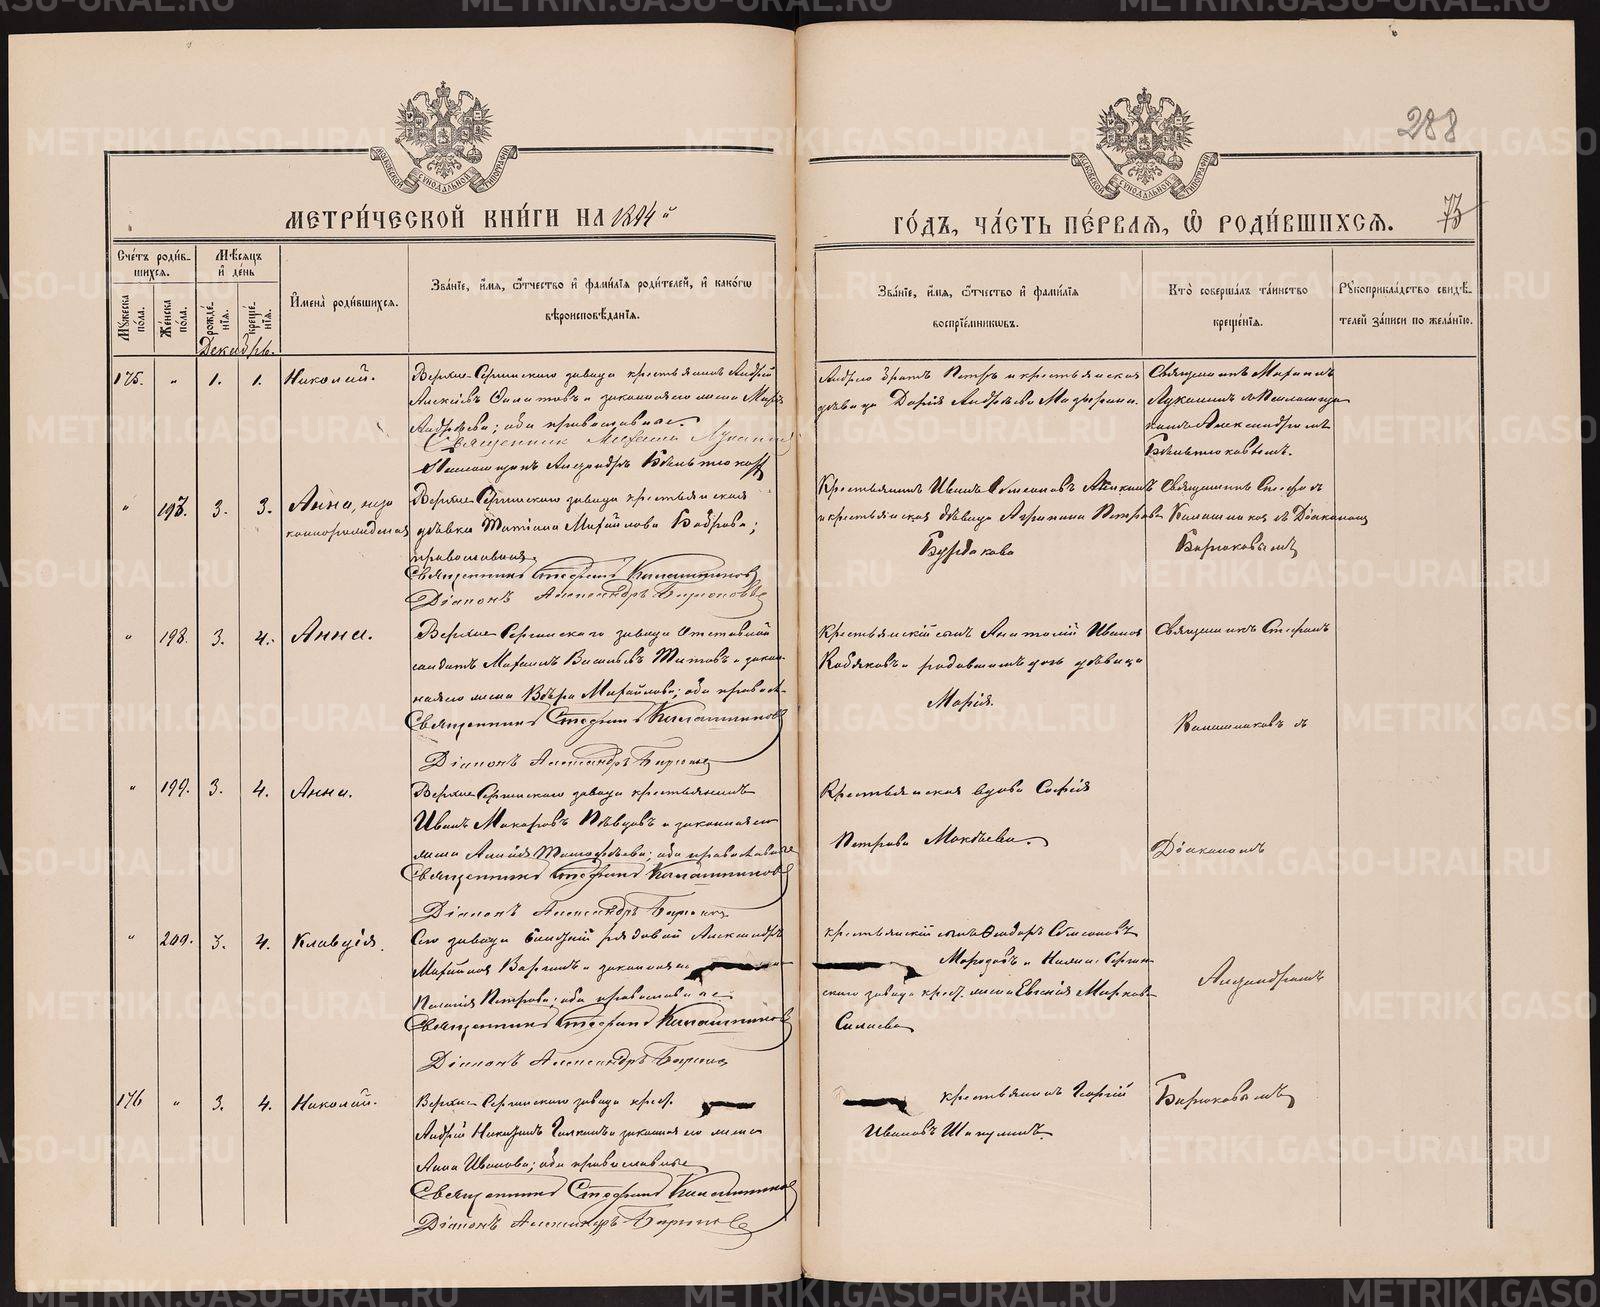 288
МОСКОВСКОЙ СѴНОДАЛЬНОЙ ТИПОГРАФІИ
МОСКОВСКОЙ СѴНОДАЛЬНОЙ ТИПОГРАФІИ
МЕТРИ́ЧЕСКОЙ КНИ́ГИ НА 1894й
ГО́ДЪ, ЧА́СТЬ ПЕ́РВАѦ, Ѡ РОДИ́ВШИХСѦ.
73
Сче́тъ роди́в-
шихсѧ.
Мꙋжеска по́ла.
Же́нска по́ла.
Мѣсѧцъ
и҆ де́нь
рожде́-нїѧ.
креще́-нїѧ.
Декабрь.
И҆мена̀ роди́вшихсѧ.
Зва́нїе, и҆́мѧ, ѻ҆́тчество и҆ фами́лїѧ роди́телей, и҆ како́гѡ
вѣроисповѣ́данїѧ.
Зва́нїе, и҆́мѧ, ѻ҆́тчество и҆ фами́лїѧ
воспрїе́мникѡвъ.
Кто̀ соверша́лъ та́инство
креще́нїѧ.
Рꙋкоприкла́дство свидѣ́-
телей за́писи по жела́нїю.
175. " 1. 1. Николай.
Верхне-Сергинскаго завода крестьянинъ Андрей
и законная его жена Марія
Андреева; оба православные.
Священник Михаилъ Лукинъ
Псаломщикъ Александръ
Андрея братъ Петръ и крестьянская
дѣвица Дарія Андреева
Священникъ Михаилъ
Лукинъ съ Псаломщи-
комъ Александромъ
" 197. 3. 3. Анна, неза
коннорожденная
Верхне-Сергинскаго завода крестьянская
дѣвка Татіана Михайлова Боброва;
православная.
Священникъ Стефанъ Калашниковъ
Діаконъ Александръ Бирюковъ
Крестьянинъ Иванъ
и крестьянская дѣвица Агрипина Петрова
Бурдакова
Священникъ Стефанъ
Калашниковъ съ Діакономъ
Бирюковымъ
" 198. 3. 4. Анна.
Верхне-Сергинскаго завода отставной
солдатъ Михаилъ Васильевъ Титовъ и закон-
ная его жена Вѣра Михайлова; оба правосл.
Священникъ Стефанъ Калашниковъ
Діаконъ Александръ Бирюковъ
Крестьянскій сынъ Анатолій Иванов
Кобяковъ и родившаго дочь дѣвица
Марія.
Священникъ Стефанъ
Калашниковъ съ
" 199. 3. 4. Анна.
Верхне-Сергинскаго завода крестьянинъ
Иванъ Макаровъ Пѣвцовъ и законная его
жена Тимофѣева; оба православные
Священникъ Стефанъ Калашниковъ
Діаконъ Александръ Бирюков
Крестьянская вдова Софія
Петрова Мокѣева.
Діакономъ
" 200. 3. 4. Клавдія.
Сего завода рядовой Александръ
и законная его
Пелагія Петрова; оба православные
Священникъ Стефанъ Калашниковъ
Діаконъ Александръ Бирюков
крестьянскій сынъ Ѳедоръ
Морозовъ и Нижне-Сергин-
скаго завода крест. жена Евгенія Маркова
Силаева
Александромъ
176 " 3. 4. Николай.
Верхне-Сергинскаго завода крест.
Андрей и законная его жена
Анна Иванова; оба православные
Священникъ Стефанъ Калашников
Діаконъ Александръ Бирюков
крестьянинъ Георгій
Ивановъ
Бирюковымъ
METRIKI.GASO-URAL.RU